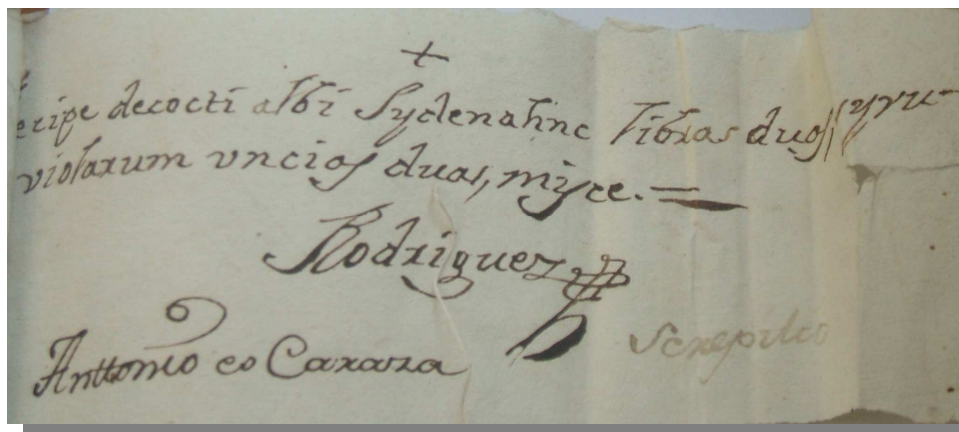 +
ecipe decocti albi Sydenahnc libras duas, Syru-
violarum vncias duas, misce.—
Rodriguez
Anttonio